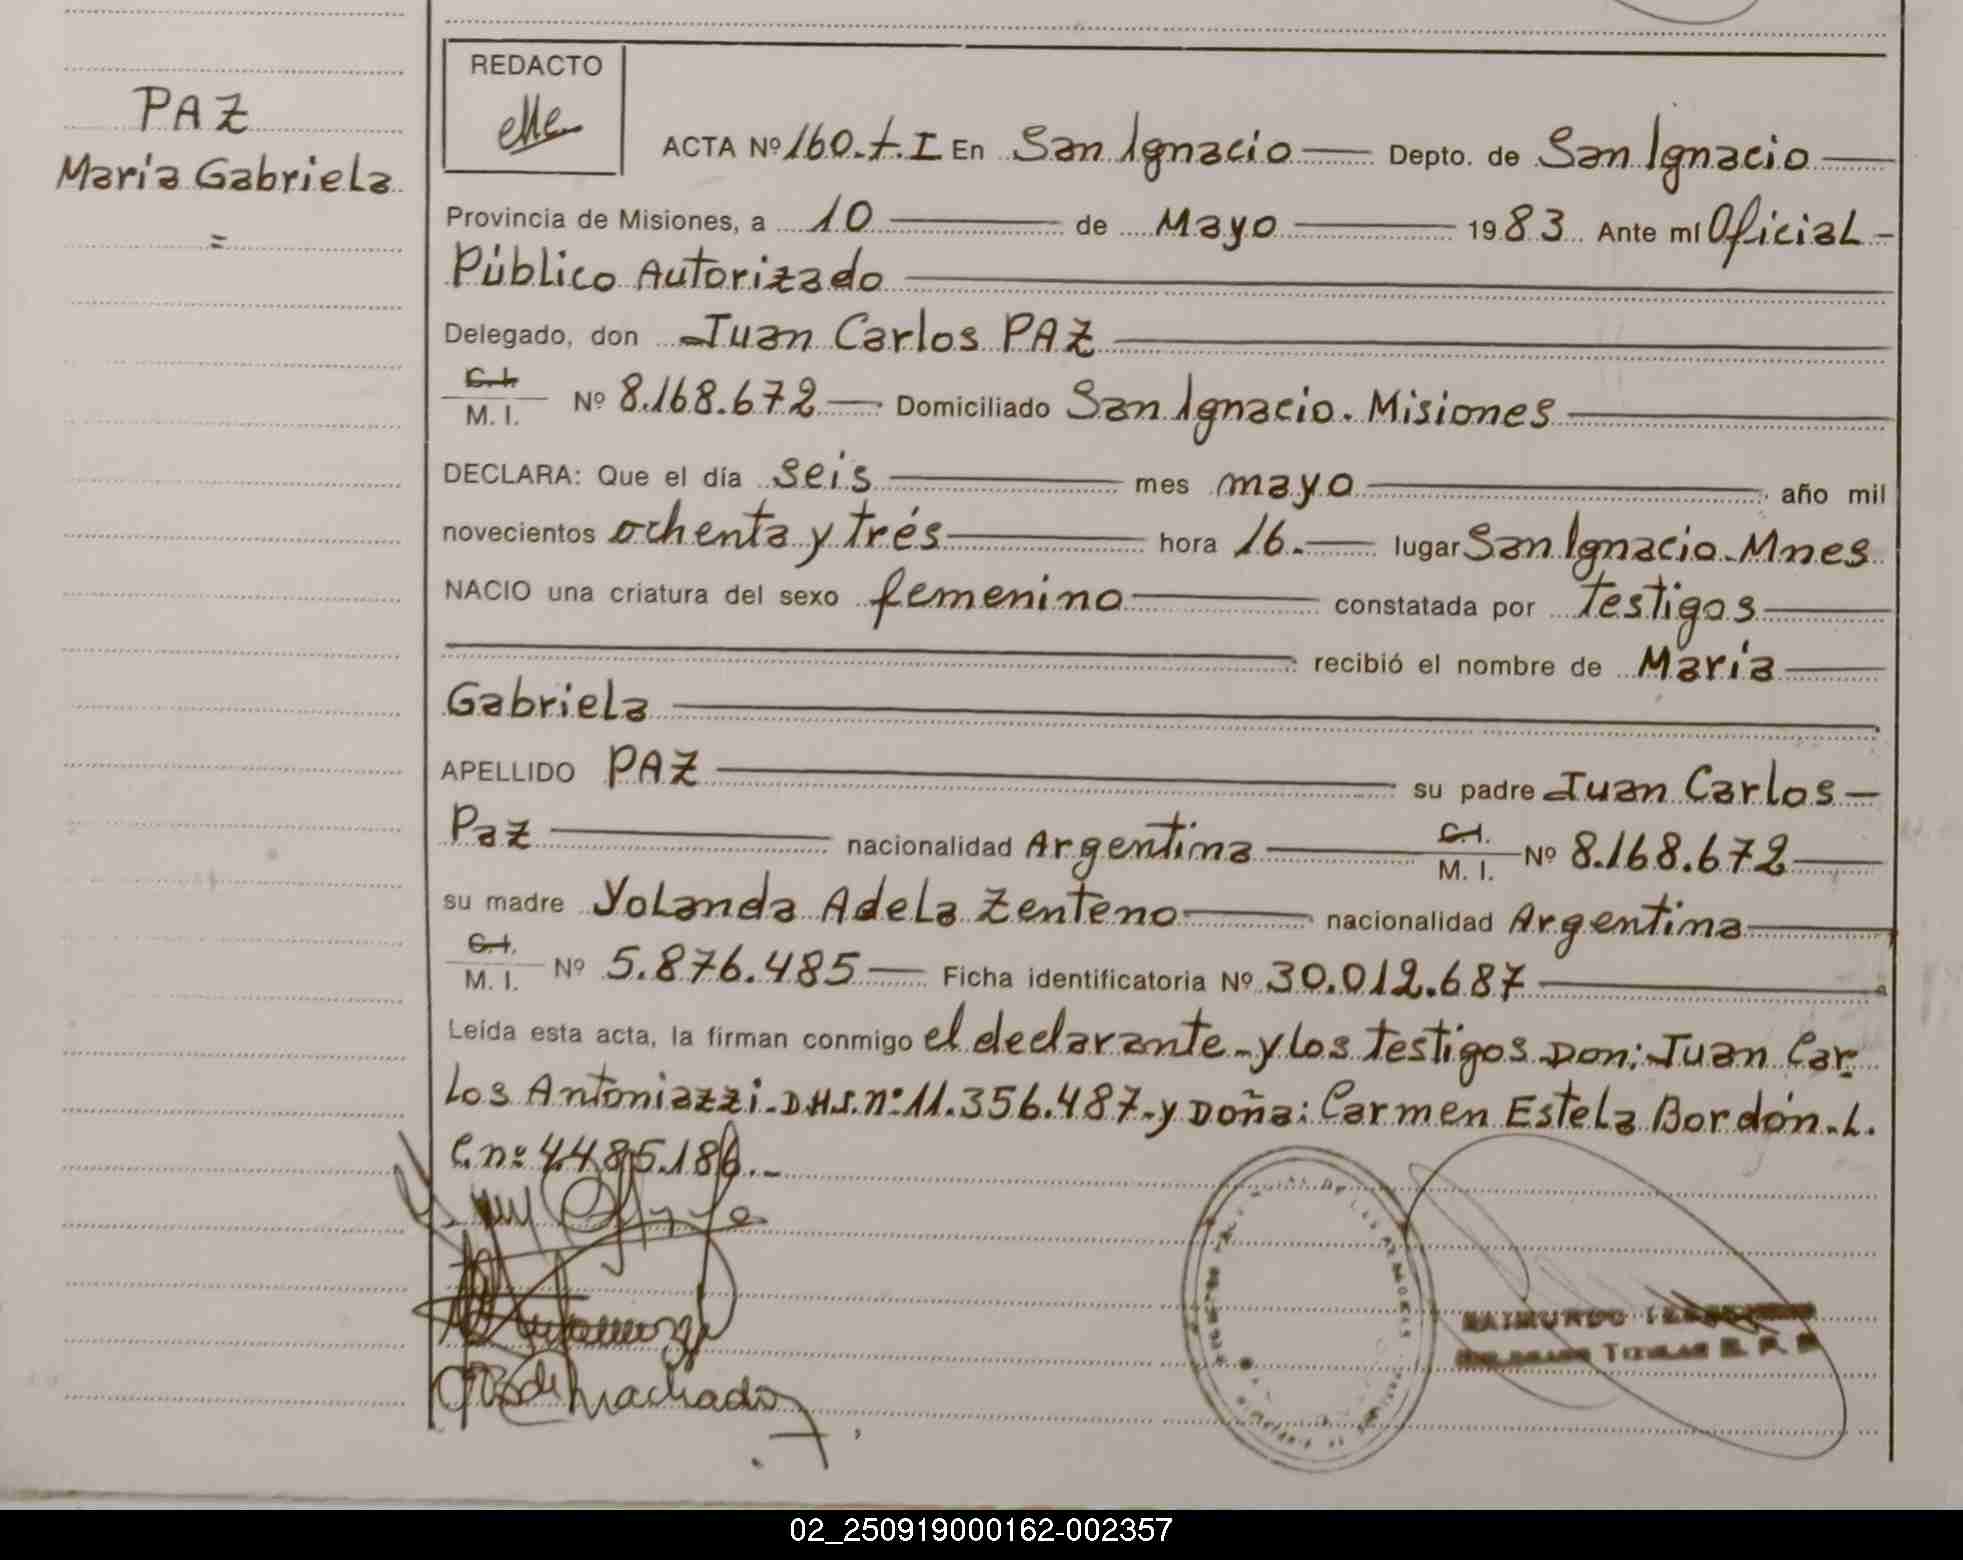 PAZ
María Gabriela
=
REDACTO
ACTA Nº 160.t.I En San Ignacio Depto. de San Ignacio
Provincia de Misiones, a 10 de Mayo 1983 Ante mí Oficial
Público Autorizado
Delegado, don Juan Carlos PAZ
C.I.
M. I. Nº 8.168.672 Domiciliado San Ignacio. Misiones
DECLARA: Que el día seis mes mayo año mil
novecientos ochenta y trés hora 16. lugar San Ignacio-Mnes
NACIO una criatura del sexo femenino constatada por testigos
recibió el nombre de María
Gabriela
APELLIDO PAZ su padre Juan Carlos
Paz nacionalidad Argentina C.I. M. I. Nº 8.168.672
su madre Yolanda Adela Zenteno nacionalidad Argentina
C.I.
M. I. Nº 5.876.485 Ficha identificatoria Nº 30.012.687
Leída esta acta, la firman conmigo el declarante-y los testigos Don: Juan Car
los Antoniazzi-D.N.I.nº 11.356.487-y Doña: Carmen Estela Bordón.-L.
C.nº 4.485.186.-
Machado
RAIMUNDO
TITULAR R. P. P
02_250919000162-002357